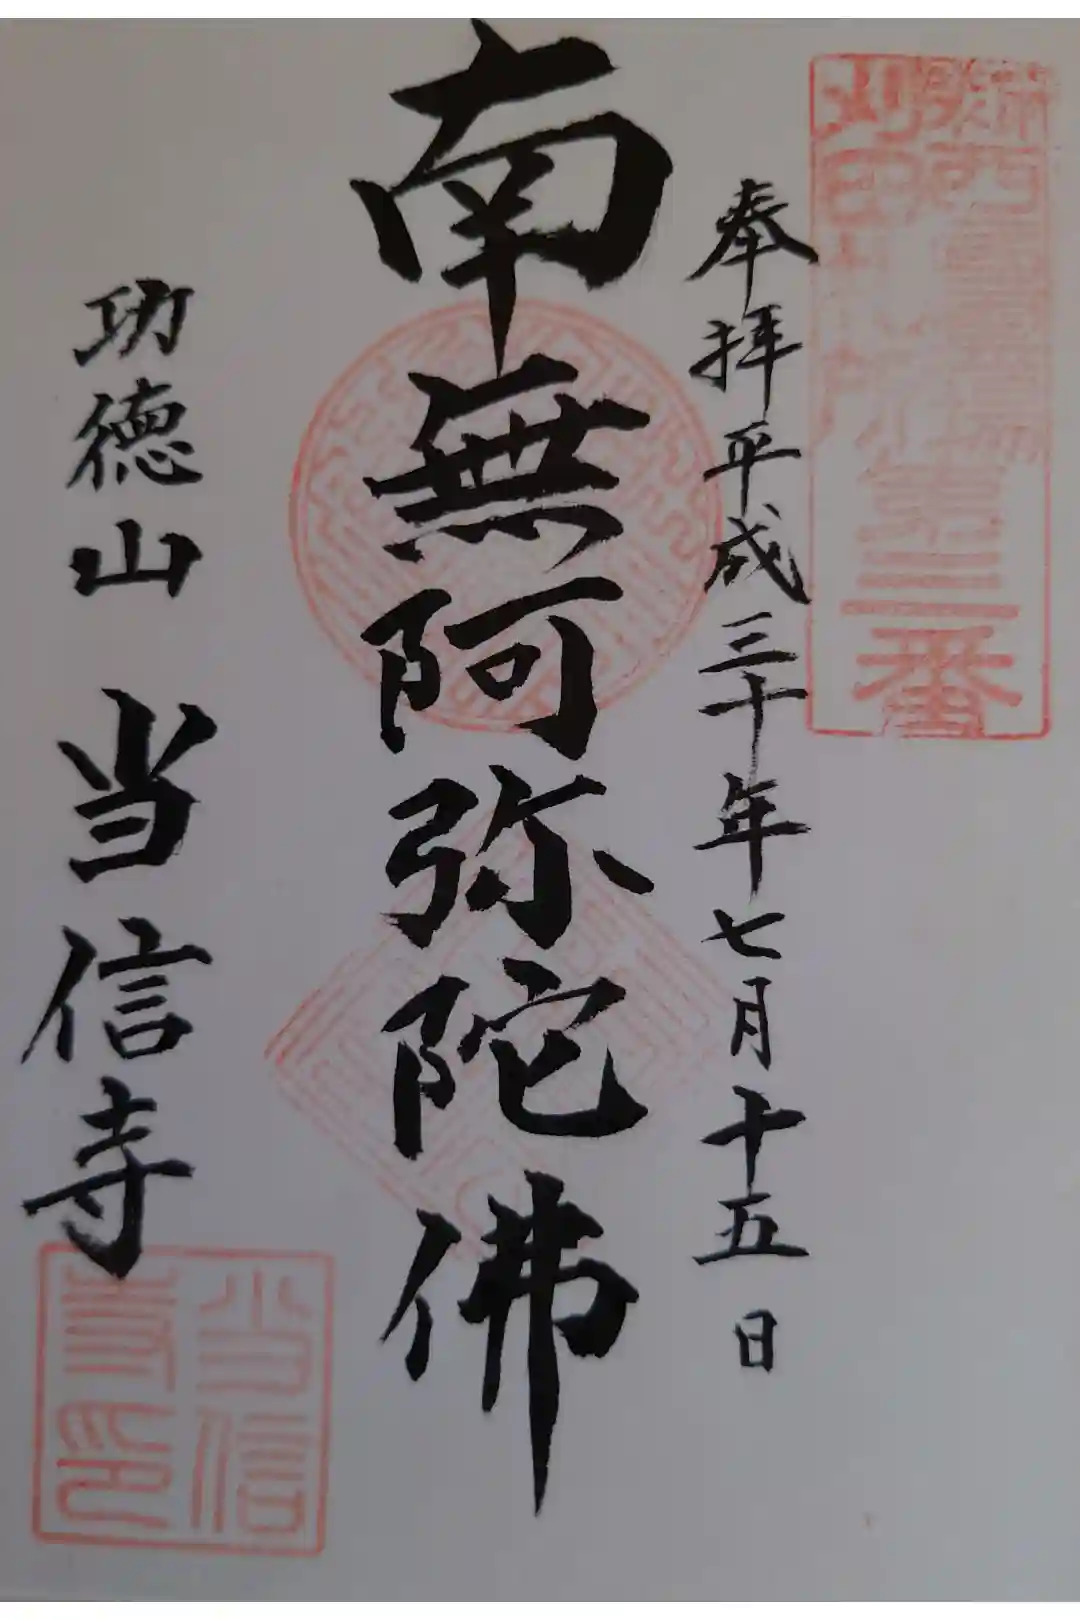 奉拝平成三十年七月十五日
南無阿弥陀佛
功徳山 当信寺
当信
寺印